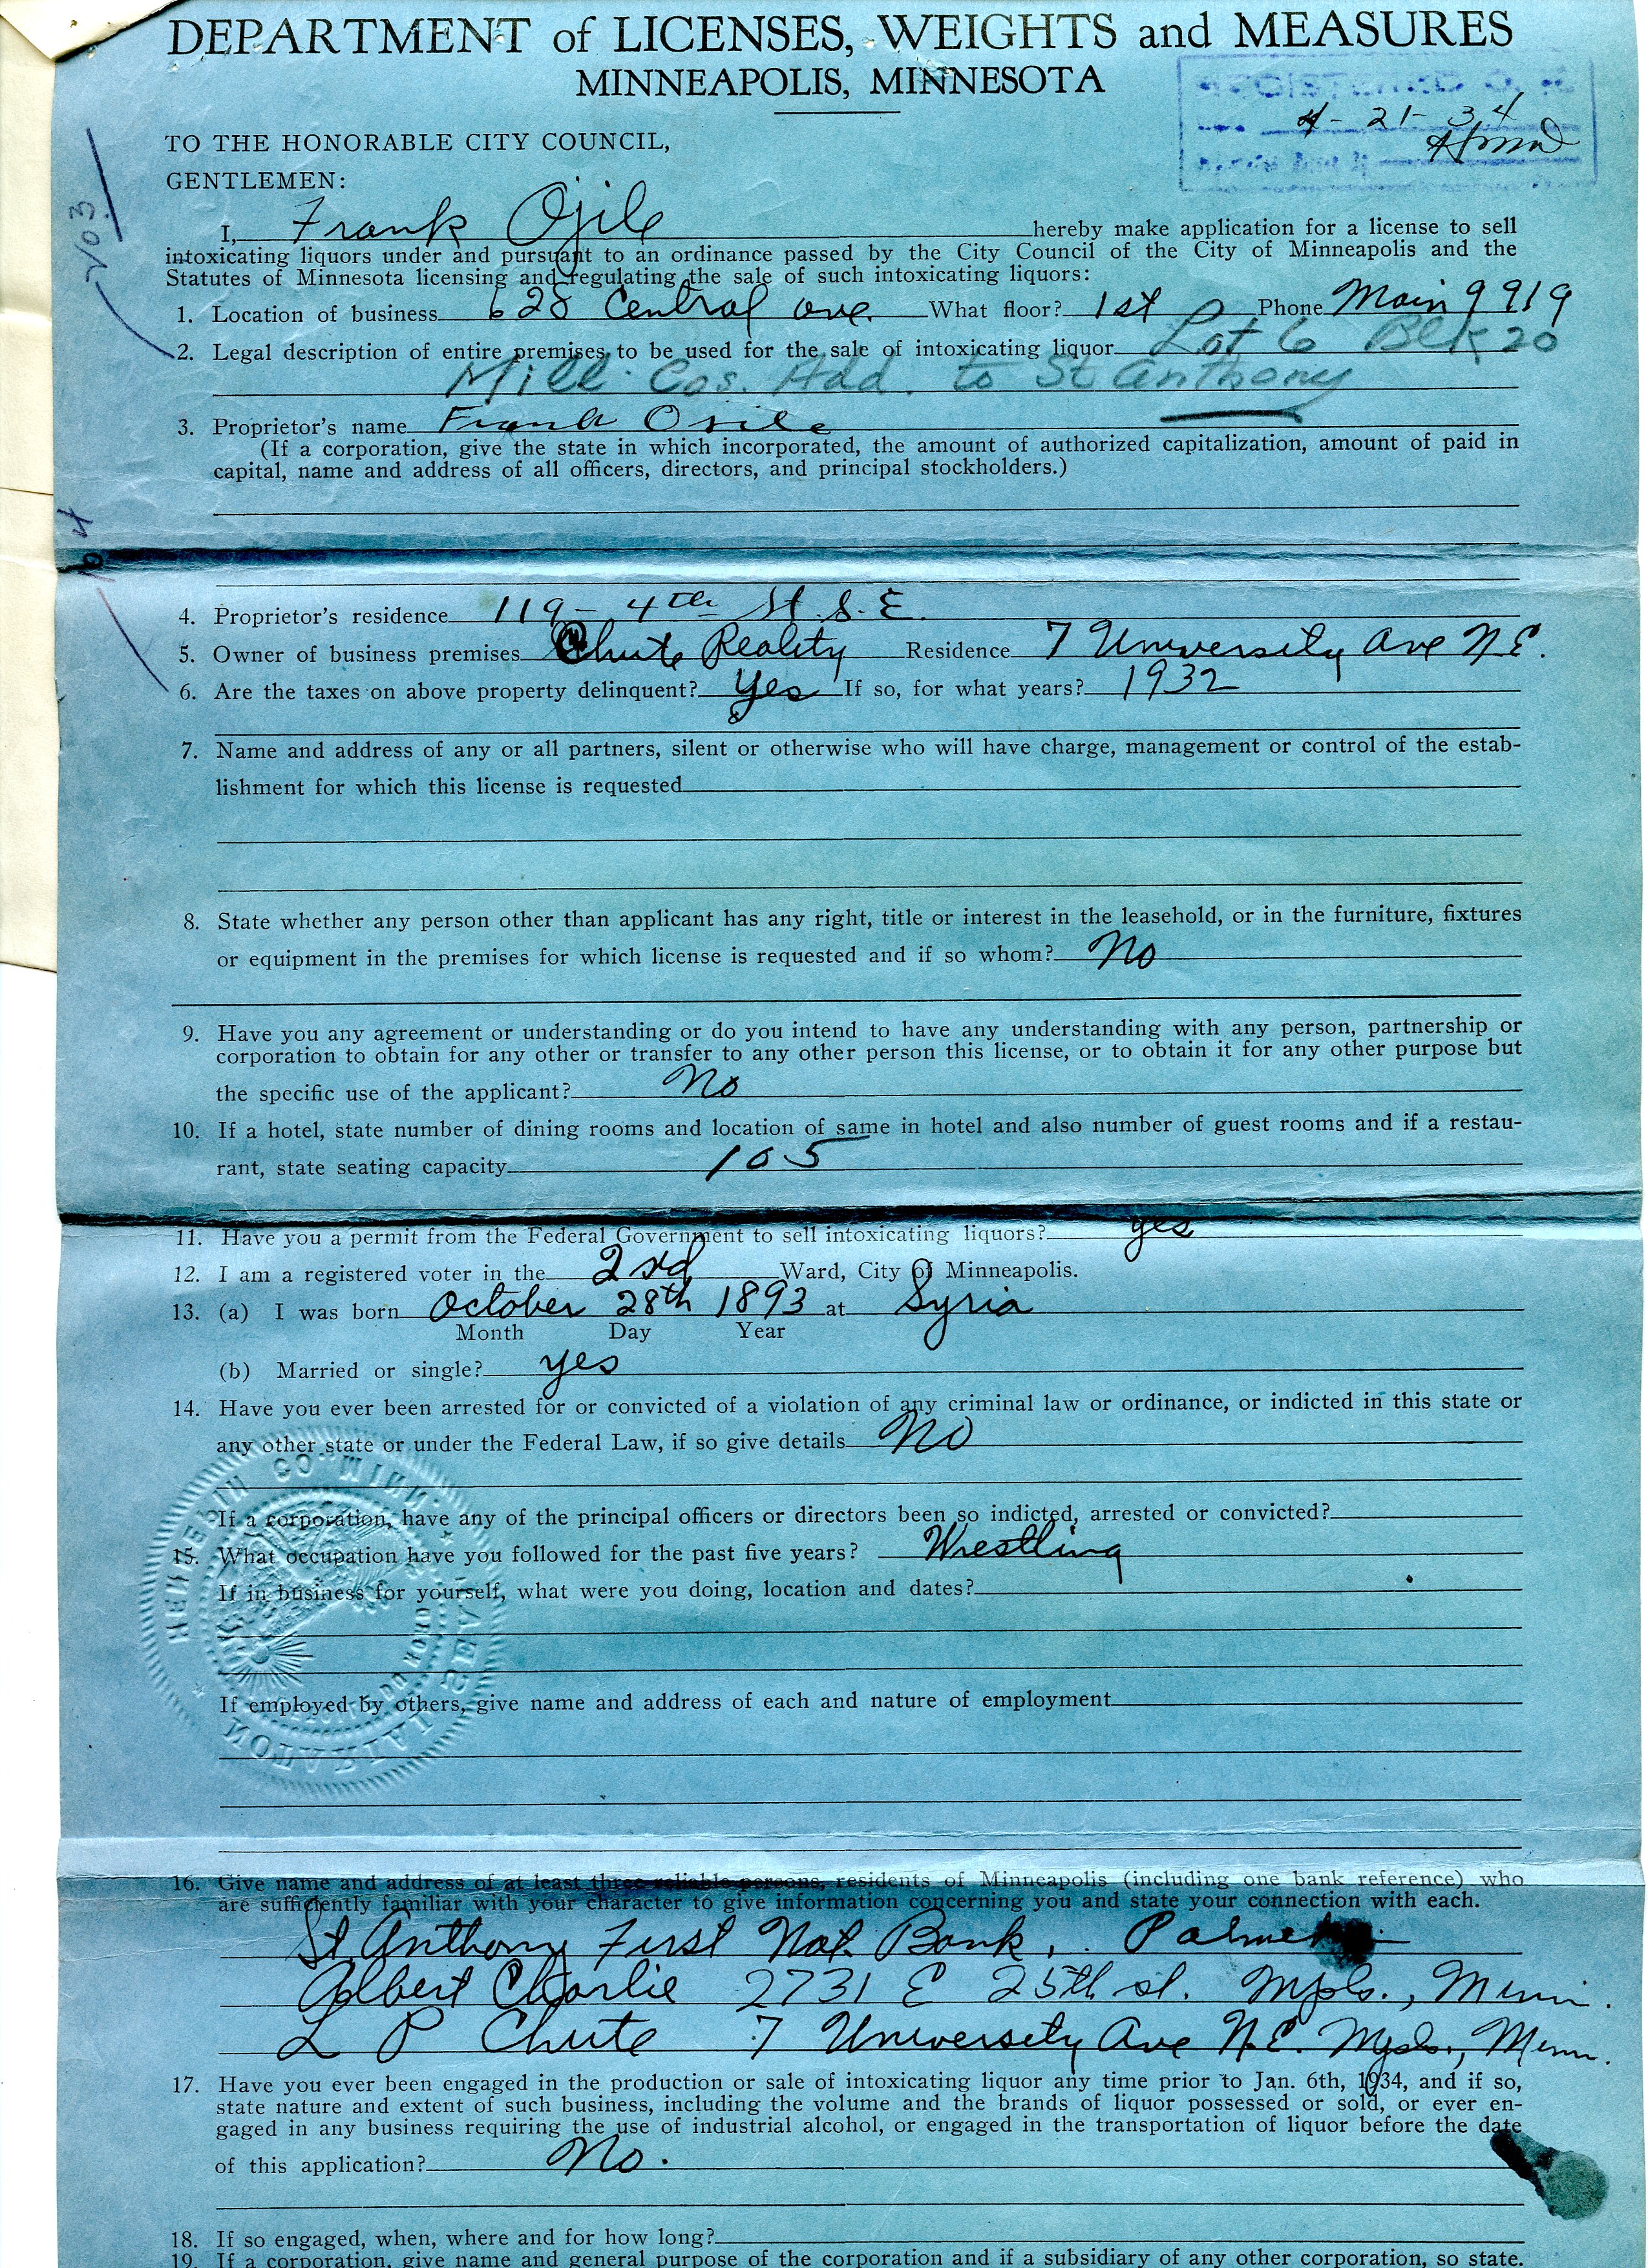 DEPARTMENT of LICENSES, WEIGHTS and MEASURES
MINNEAPOLIS, MINNESOTA
REGISTERED
4-21-34
TO THE HONORABLE CITY COUNCIL,
GENTLEMEN:
I, Frank Ojile hereby make application for a license to sell
intoxicating liquors under and pursuant to an ordinance passed by the City Council of the City of Minneapolis and the
Statutes of Minnesota licensing and regulating the sale of such intoxicating liquors:
1. Location of business 628 Central ave. What floor? 1st Phone Main 9919
2. Legal description of entire premises to be used for the sale of intoxicating liquor Lot 6 Blk 20
Mill Cos. Add. to St Anthony
3. Proprietor's name Frank Ojile
(If a corporation, give the state in which incorporated, the amount of authorized capitalization, amount of paid in
capital, name and address of all officers, directors, and principal stockholders.)
4. Proprietor's residence 119 - 4th St. S.E.
5. Owner of business premises Chute Reality Residence 7 University Ave N.E.
6. Are the taxes on above property delinquent? Yes If so, for what years? 1932
7. Name and address of any or all partners, silent or otherwise who will have charge, management or control of the estab-
lishment for which this license is requested
8. State whether any person other than applicant has any right, title or interest in the leasehold, or in the furniture, fixtures
or equipment in the premises for which license is requested and if so whom? No
9. Have you any agreement or understanding or do you intend to have any understanding with any person, partnership or
corporation to obtain for any other or transfer to any other person this license, or to obtain it for any other purpose but
the specific use of the applicant? No
10. If a hotel, state number of dining rooms and location of same in hotel and also number of guest rooms and if a restau-
rant, state seating capacity 105
11. Have you a permit from the Federal Government to sell intoxicating liquors? yes
12. I am a registered voter in the 2nd Ward, City of Minneapolis.
13. (a) I was born October 28th 1893 at Syria
Month Day Year
(b) Married or single? yes
14. Have you ever been arrested for or convicted of a violation of any criminal law or ordinance, or indicted in this state or
any other state or under the Federal Law, if so give details No
If a corporation, have any of the principal officers or directors been so indicted, arrested or convicted?
15. What occupation have you followed for the past five years? Wrestling
If in business for yourself, what were you doing, location and dates?
If employed by others, give name and address of each and nature of employment
16. Give name and address of at least three reliable persons, residents of Minneapolis (including one bank reference) who
are sufficiently familiar with your character to give information concerning you and state your connection with each.
St Anthony First Nat. Bank, Palmer
Albert Charlie 2731 E 25th st. Mpls., Minn.
L P Chute 7 University Ave N.E. Mpls., Minn.
17. Have you ever been engaged in the production or sale of intoxicating liquor any time prior to Jan. 6th, 1934, and if so,
state nature and extent of such business, including the volume and the brands of liquor possessed or sold, or ever en-
gaged in any business requiring the use of industrial alcohol, or engaged in the transportation of liquor before the date
of this application? No.
18. If so engaged, when, where and for how long?
19. If a corporation, give name and general purpose of the corporation and if a subsidiary of any other corporation, so state.